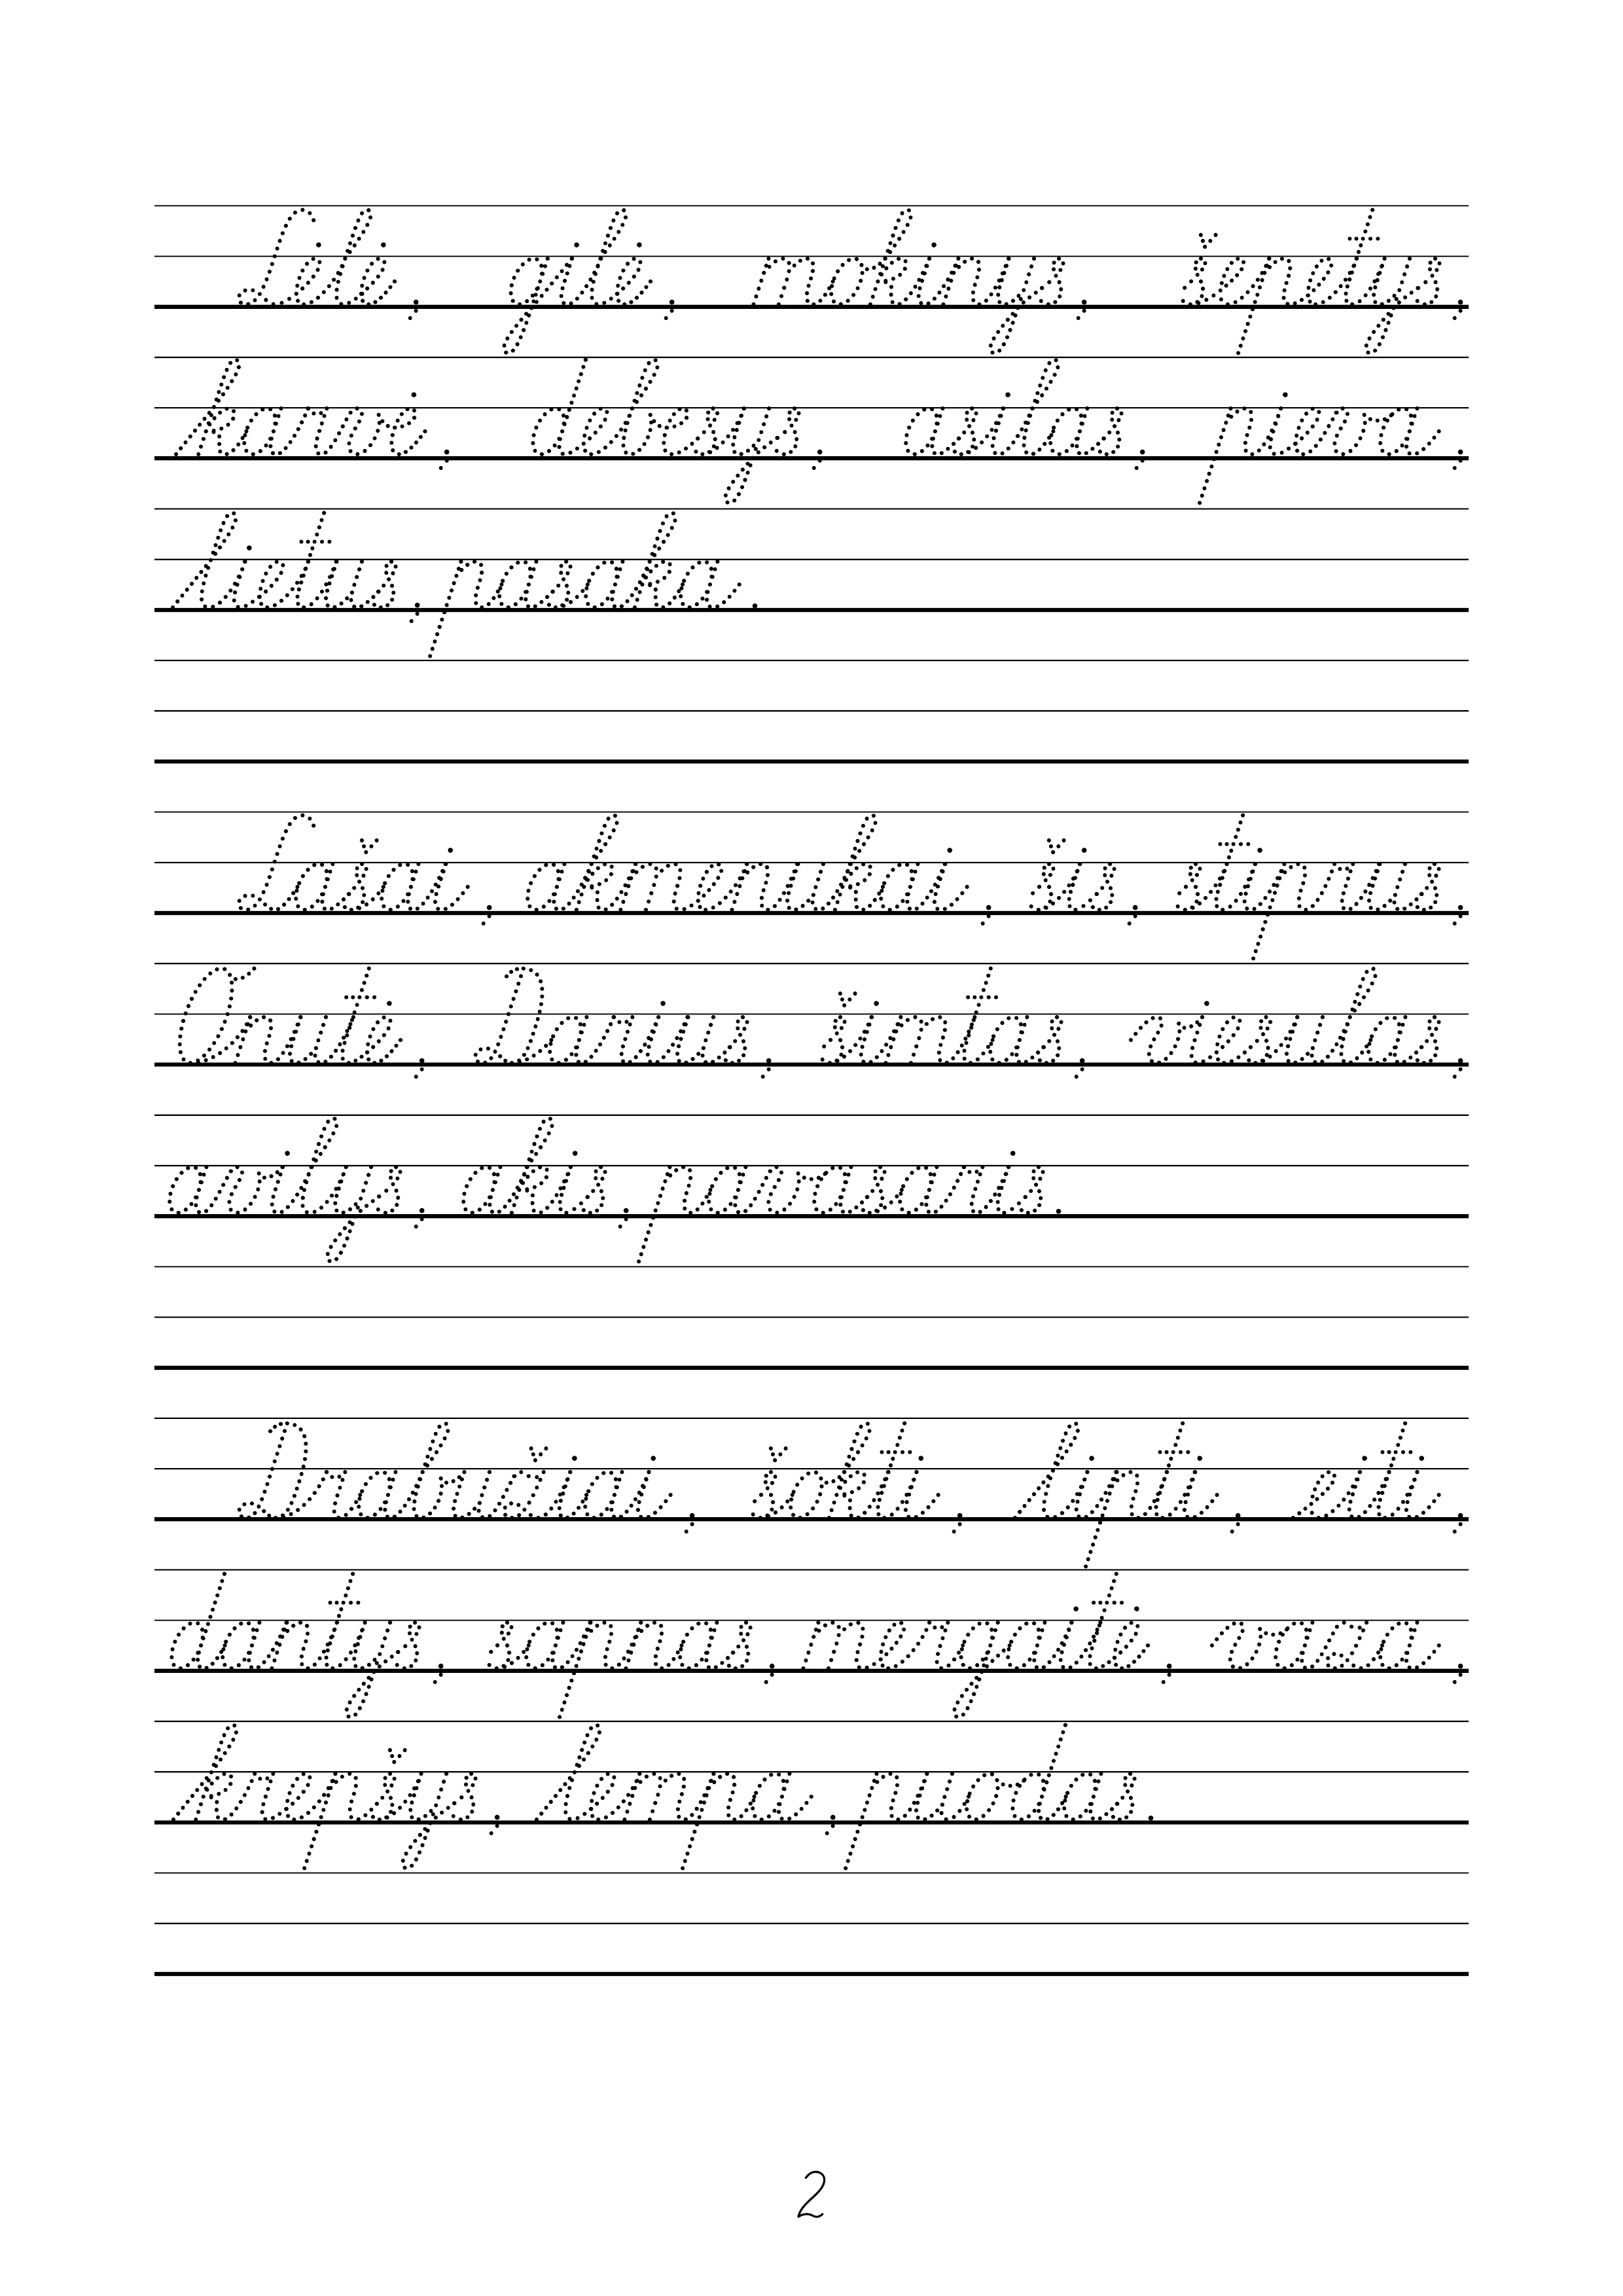 Lėlė, gėlė, mokinys, šepetys,
karvė, debesys, asilas, pieva,
lietus, pasaka.
Lašai, akmenukai, šis, stiprus,
Onutė, Darius, šimtas, viesulas,
avilys, akis, pavasaris.
Drabužiai, šokti, lipti, eiti,
dantys, sapnas, mergaitė, vaza,
krepšys, lempa, puodas.
2